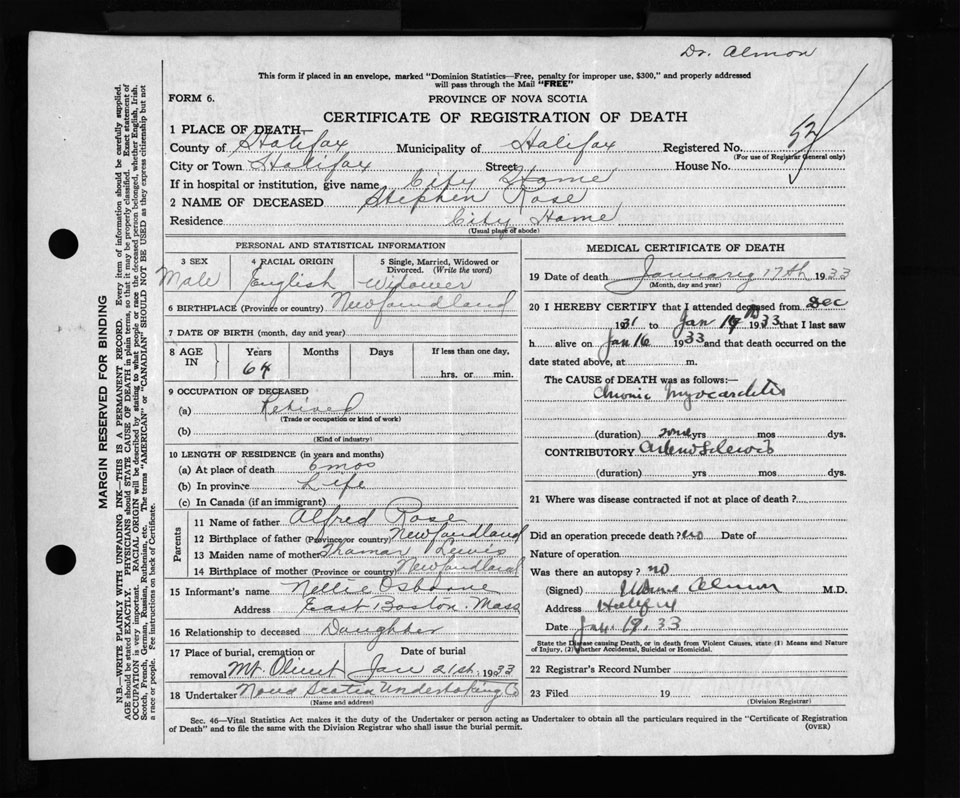 Dr. Almon
This form if placed in an envelope, marked "Dominion Statistics—Free, penalty for improper use, $300," and properly addressed
will pass through the Mail "FREE"
FORM 6.
PROVINCE OF NOVA SCOTIA
CERTIFICATE OF REGISTRATION OF DEATH
1 PLACE OF DEATH—
County of Halifax Municipality of Halifax Registered No. 52
(For use of Registrar General only)
City or Town Halifax Street House No.
If in hospital or institution, give name City Home
2 NAME OF DECEASED Stephen Rose
Residence City Home
(Usual place of abode)
PERSONAL AND STATISTICAL INFORMATION
3 SEX 4 RACIAL ORIGIN 5 Single, Married, Widowed or
Divorced. (Write the word)
Male English Widower
6 BIRTHPLACE (Province or country) Newfoundland
7 DATE OF BIRTH (month, day and year)
8 AGE IN Years Months Days If less than one day,
64 hrs. or min.
9 OCCUPATION OF DECEASED
(a) Retired
(Trade or occupation or kind of work)
(b)
(Kind of industry)
10 LENGTH OF RESIDENCE (in years and months)
(a) At place of death 6 mos
(b) In province Life
(c) In Canada (if an immigrant)
Parents
11 Name of father Alfred Rose
12 Birthplace of father (Province or country) Newfandland
13 Maiden name of mother Thamar Lewis
14 Birthplace of mother (Province or country) Newfandland
15 Informant's name Nellie Osborne
Address East Boston Mass
16 Relationship to deceased Daughter
17 Place of burial, cremation or Date of burial
removal Mt. Olivet Jan 21st, 1933
18 Undertaker Nova Scotia Undertaking Co
(Name and address)
MEDICAL CERTIFICATE OF DEATH
19 Date of death January 17th 1933
(Month, day and year)
20 I HEREBY CERTIFY that I attended deceased from Dec
1931 to Jan 1933 that I last saw
h alive on Jan 16 1933 and that death occurred on the
date stated above, at m.
The CAUSE of DEATH was as follows:—
Chronic Myocarditis
(duration) some yrs mos dys.
CONTRIBUTORY
(duration) yrs mos dys.
21 Where was disease contracted if not at place of death?
Did an operation precede death? no Date of
Nature of operation
Was there an autopsy? no
(Signed) Almon M.D.
Address Halifax
Date Jan 19. 33
State the Disease causing Death, or in death from Violent Causes, state (1) Means and Nature
of Injury, (2) Whether Accidental, Suicidal or Homicidal.
22 Registrar's Record Number
23 Filed 19
(Division Registrar)
Sec. 46—Vital Statistics Act makes it the duty of the Undertaker or person acting as Undertaker to obtain all the particulars required in the "Certificate of Registration
of Death" and to file the same with the Division Registrar who shall issue the burial permit. (OVER)
MARGIN RESERVED FOR BINDING
N.B.—WRITE PLAINLY WITH UNFADING INK—THIS IS A PERMANENT RECORD. Every item of information should be carefully supplied.
AGE should be stated EXACTLY. PHYSICIANS should STATE CAUSE OF DEATH in plain terms, so that it may be properly classified. Exact statement of
OCCUPATION is very important. RACIAL ORIGIN will be described by stating to what people or race the deceased person belonged, whether English, Irish,
Scotch, French, German, Russian, Ruthenian, etc. The terms "AMERICAN" or "CANADIAN" SHOULD NOT BE USED as they express citizenship but not
a race or people. See instructions on back of Certificate.